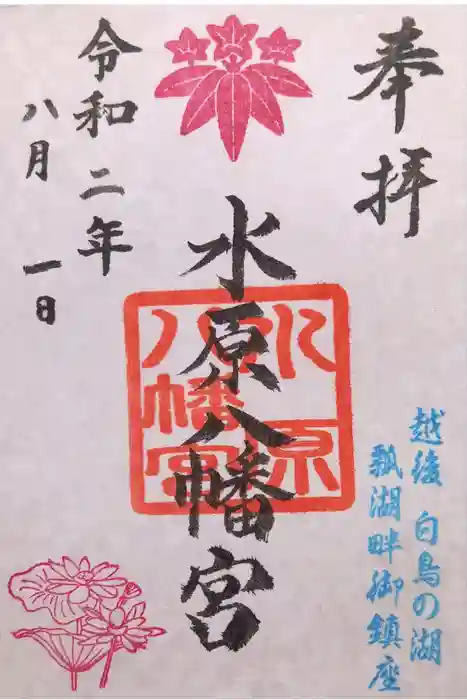 奉拝
越後 白鳥の湖
瓢湖畔御鎮座
水原八幡宮
水原八幡宮
令和二年
八月 一日